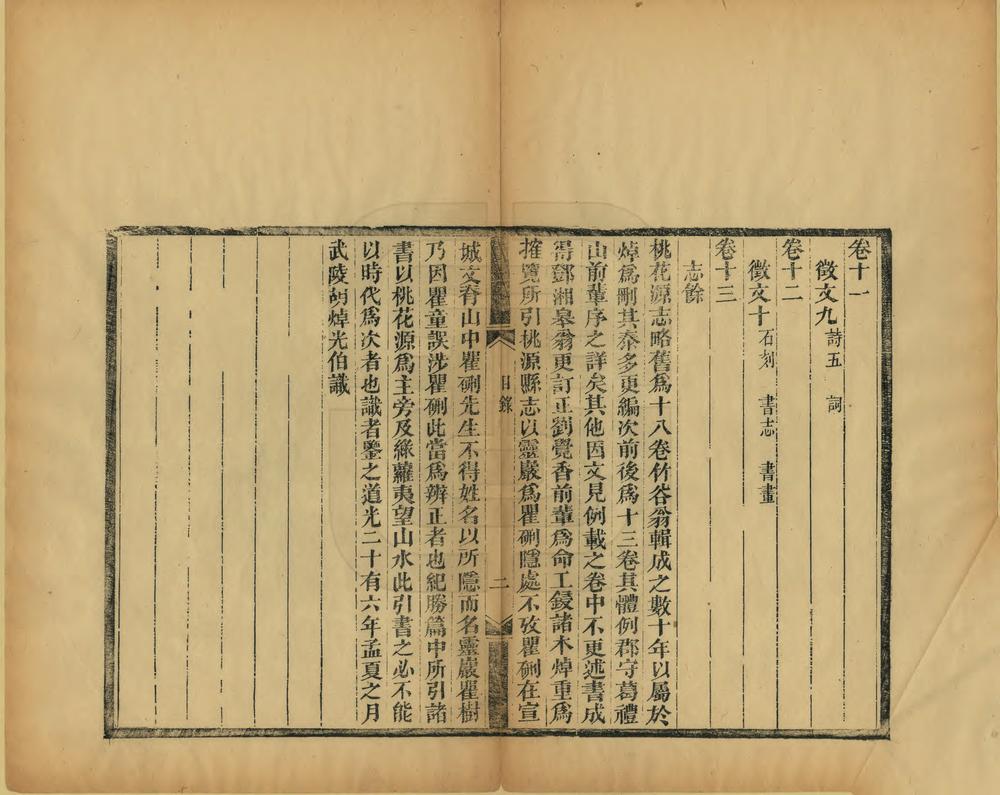 卷十一
徵文九 詩五 詞
卷十二
徵文十 石刻 書志 書畫
卷十三
志餘
桃花源志略舊爲十八卷竹谷翁輯成之數十年以屬於
焯爲刪其泰多更編次前後爲十三卷其體例郡守葛禮
山前輩序之詳矣其他因文見例載之卷中不更述書成
得鄧湘皋翁更訂正劉覺香前輩爲命工鋟諸木焯重爲
搉覽所引桃源縣志以靈巖爲瞿硎隱處不攷瞿硎在宣
目錄
二
城文脊山中瞿硎先生不得姓名以所隱而名靈巖瞿樹
乃因瞿童誤涉瞿硎此當爲辨正者也紀勝篇中所引諸
書以桃花源爲主旁及綠蘿夷望山水此引書之必不能
以時代爲次者也識者鑒之道光二十有六年孟夏之月
武陵胡焯光伯識